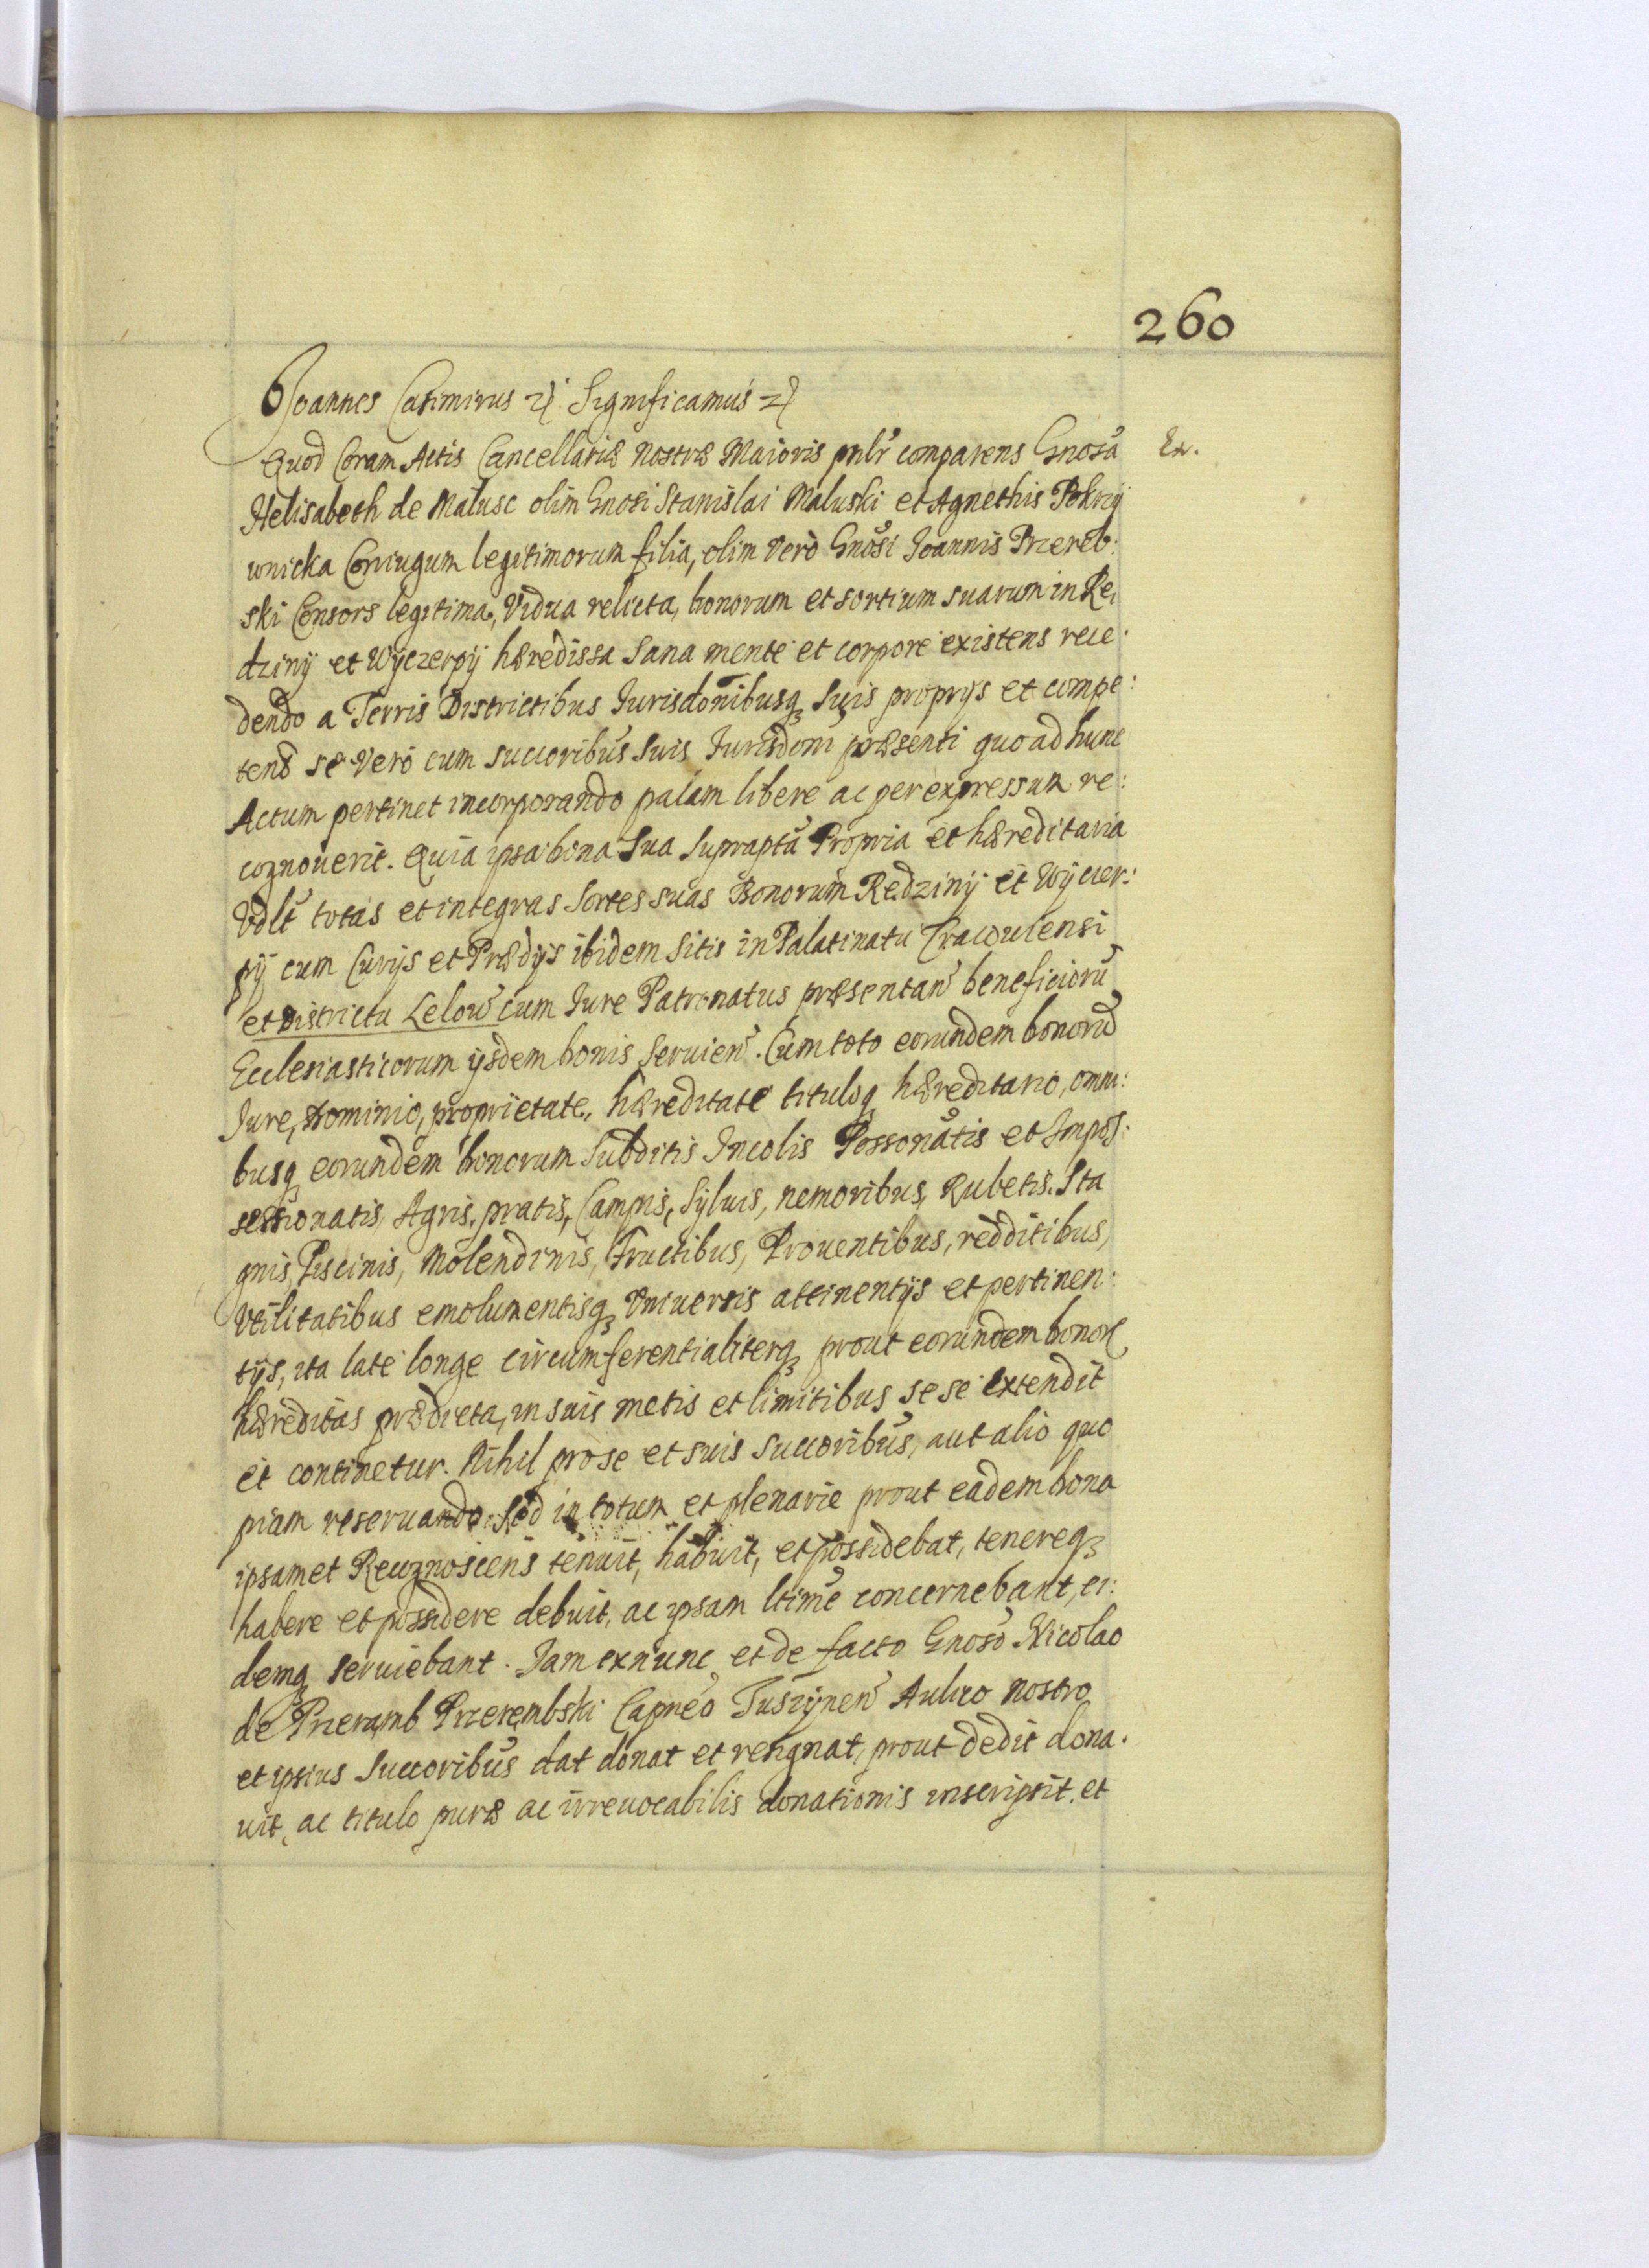 260
Joannes Casimirus Significamus
Ex.
Quod Coram Actis Cancellariæ Nostræ Maioris pnlr comparens Gnosa
Helisabeth de Malusc olim Gnosi Stanislai Maluski et Agnethis Pokrzy
wnicka Coniugum legitimorum filia, olim verò Gnosi Joannis Przereb:
ski Consors legitima, Vidua relicta, bonorum et sortium suarum in Re,
dziny et Wyczerpy hæredissa sana mente et corpore existens rece:
dendo a Terris Districtibus Jurisdonibusq suis proprys et compe:
tend se verò cum succoribus suis Jurisdoni præsenti quo ad hunc
Actum pertinet incorporando palam libere ac per expressum re:
cognouerit. Quia ipsa bona sua supraptu Propria et hæreditaria
Vdlt totas et integras sortes suas Bonorum Redziny et Wyczer:
py cum Curys et Prædys ibidem sitis in Palatinatu Cracouiensi
et Districtu Lelow cum Jure Patronatus præsentan beneficioru
Ecclesiasticorum ysdem bonis seruien. Cum toto eorundem bonorũ
Jure, Dominio, proprietate, hæreditate tituloq hæreditario, omni:
busq eorundem bonorum Subditis Incolis Possonatis et Impos:
sessionatis, Agris, pratis, Campis, Syluis, nemoribus, Rubetis, Sta
gnis, Piscinis, Molendinis, Fructibus, Prouentibus, redditibus,
Vtilitatibus emolumentisq Vniuersis attinentys et pertinen:
tys, ita late longe circumferentialiterq prout eorundem bonor
hæreditas prædicta, in suis metis et limitibus sese extendit
et continetur. Nihil pro se et suis succoribus, aut alio quo
piam reseruando. Sed in totum et plenarie prout eadem bona
ipsamet Recognoscens tenuit, habuit, et possidebat, tenereq
habere et possidere debuit, ac ipsam ltime concernebant, ei:
demq seruiebant. Jam exnunc et de facto Gnoso Nicolao
de Przeramb Przerembski Capneo Tuszynen Aulico nostro
et ipsius succoribus dat donat et resignat, prout dedit dona.
uit, ac titulo puræ ac irreuocabilis donationis inscripsit, et